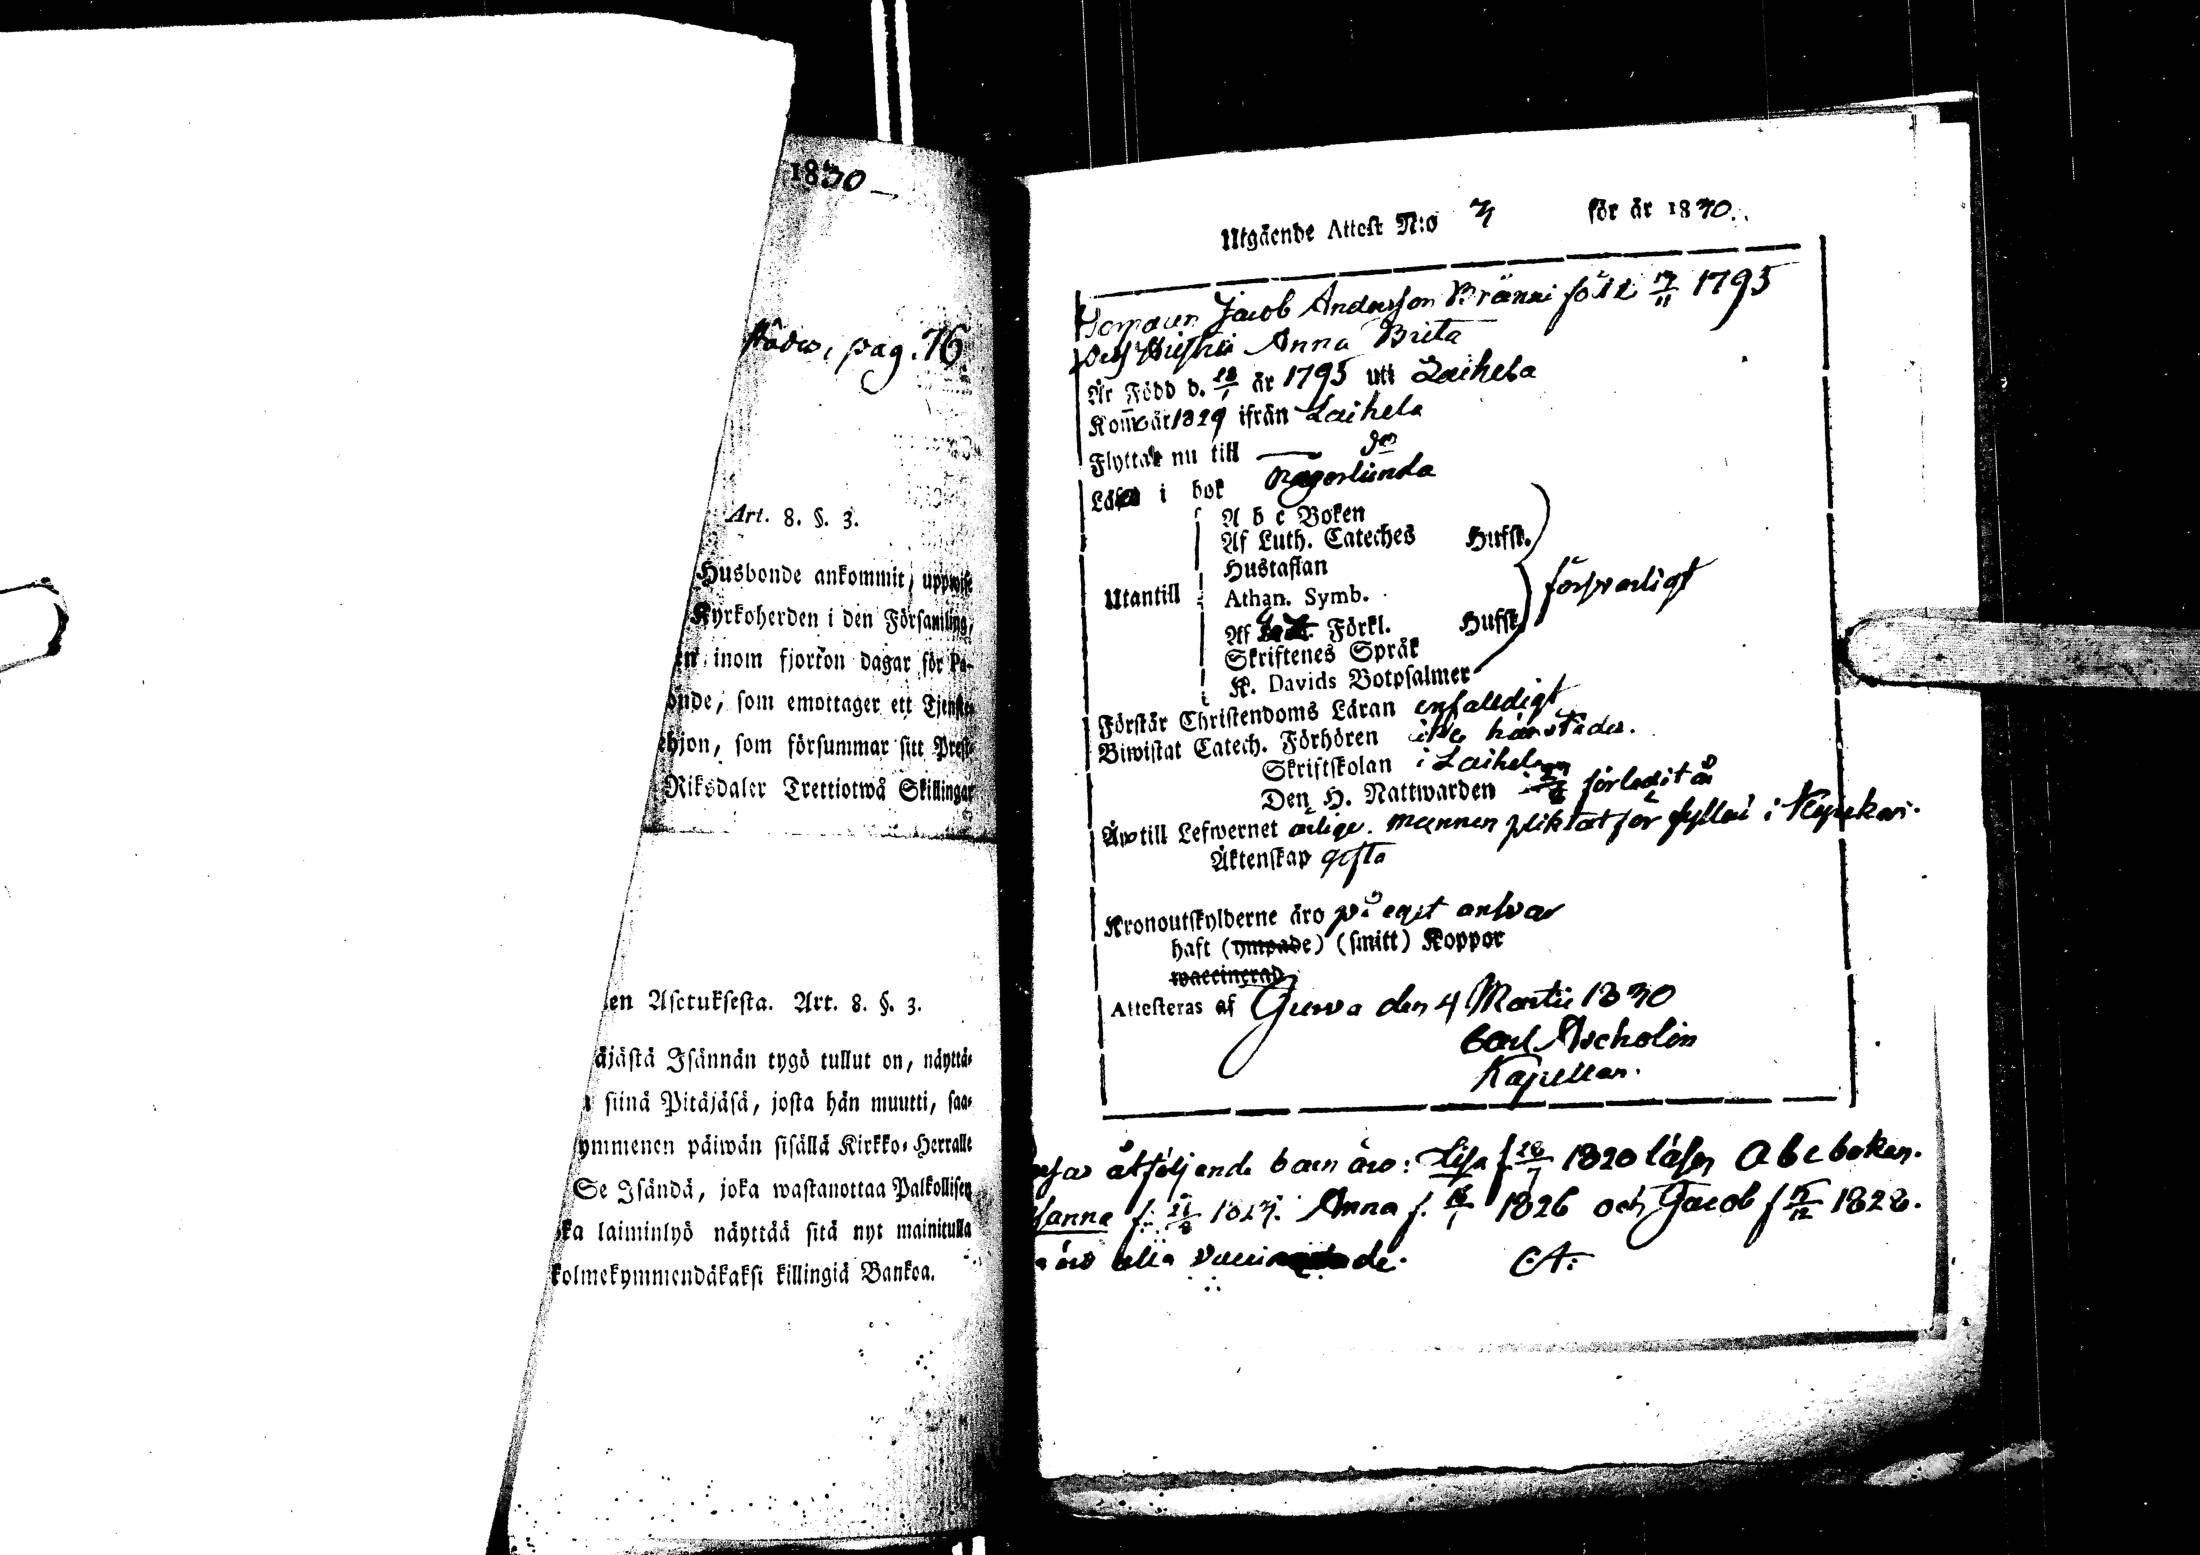 1830
städes, pag. 76
Art. 8. §. 3.
Husbonde ankommit, uppwise
Kyrkoherden i den Församling,
en inom fjorton dagar för Pa-
onde, som emottager ett Tjenste-
ehjon, som försummar sitt Prest-
Riksdaler Trettiotwå Skillingar
en Asetuksesta. Art. 8. §. 3.
äjästä Isännän tygö tullut on, näyttä-
siinä Pitäjäsä, josta hän muutti, saa-
ymmenen päiwän sisällä Kirkko-Herralle
Se Isändä, joka wastanottaa Palkollisen
ka laiminlyö näyttää sitä nyt mainitulla
kolmekymmendäkaksi killingiä Bankoa.
Utgående Attest N:o 3 för år 1830.
Jacob Andersson Bränni född 1795
Anna Brita
Är Född d. 18/1 år 1795 uti Laihela
Kom̅ år 1829 ifrån Laihela
Flytta nu till —
Läsa i bok någorlunda
A b c Boken
Af Luth. Cateches Hufst.
Hustaflan
Utantill Athan. Symb. försvarligt
Af Förkl. Hufst.
Skriftenes Språk
K. Davids Botpsalmer
Förstår Christendoms Läran enfaldigt
Biwistat Catech. Förhören icke härstädes.
Skriftskolan i Laihela
Den H. Nattwarden förledit år
Äro till Lefwernet ärlige. mannen pliktat för fylleri i
Äktenskap gifta
Kronoutskylderne äro på eget answar
haft (ympade) (smitt) Koppor
waccinerad
Attesteras af Gurva den 4 Martii 1830
Carl Ascholin
Kapellan.
åtföljande barn äro: Lisa f. 26/7 1820 läser Abc boken.
Sanna f. 21/8 1823. Anna f. 1826 och Jacob f. 15/12 1828.
äro alla
C.A.